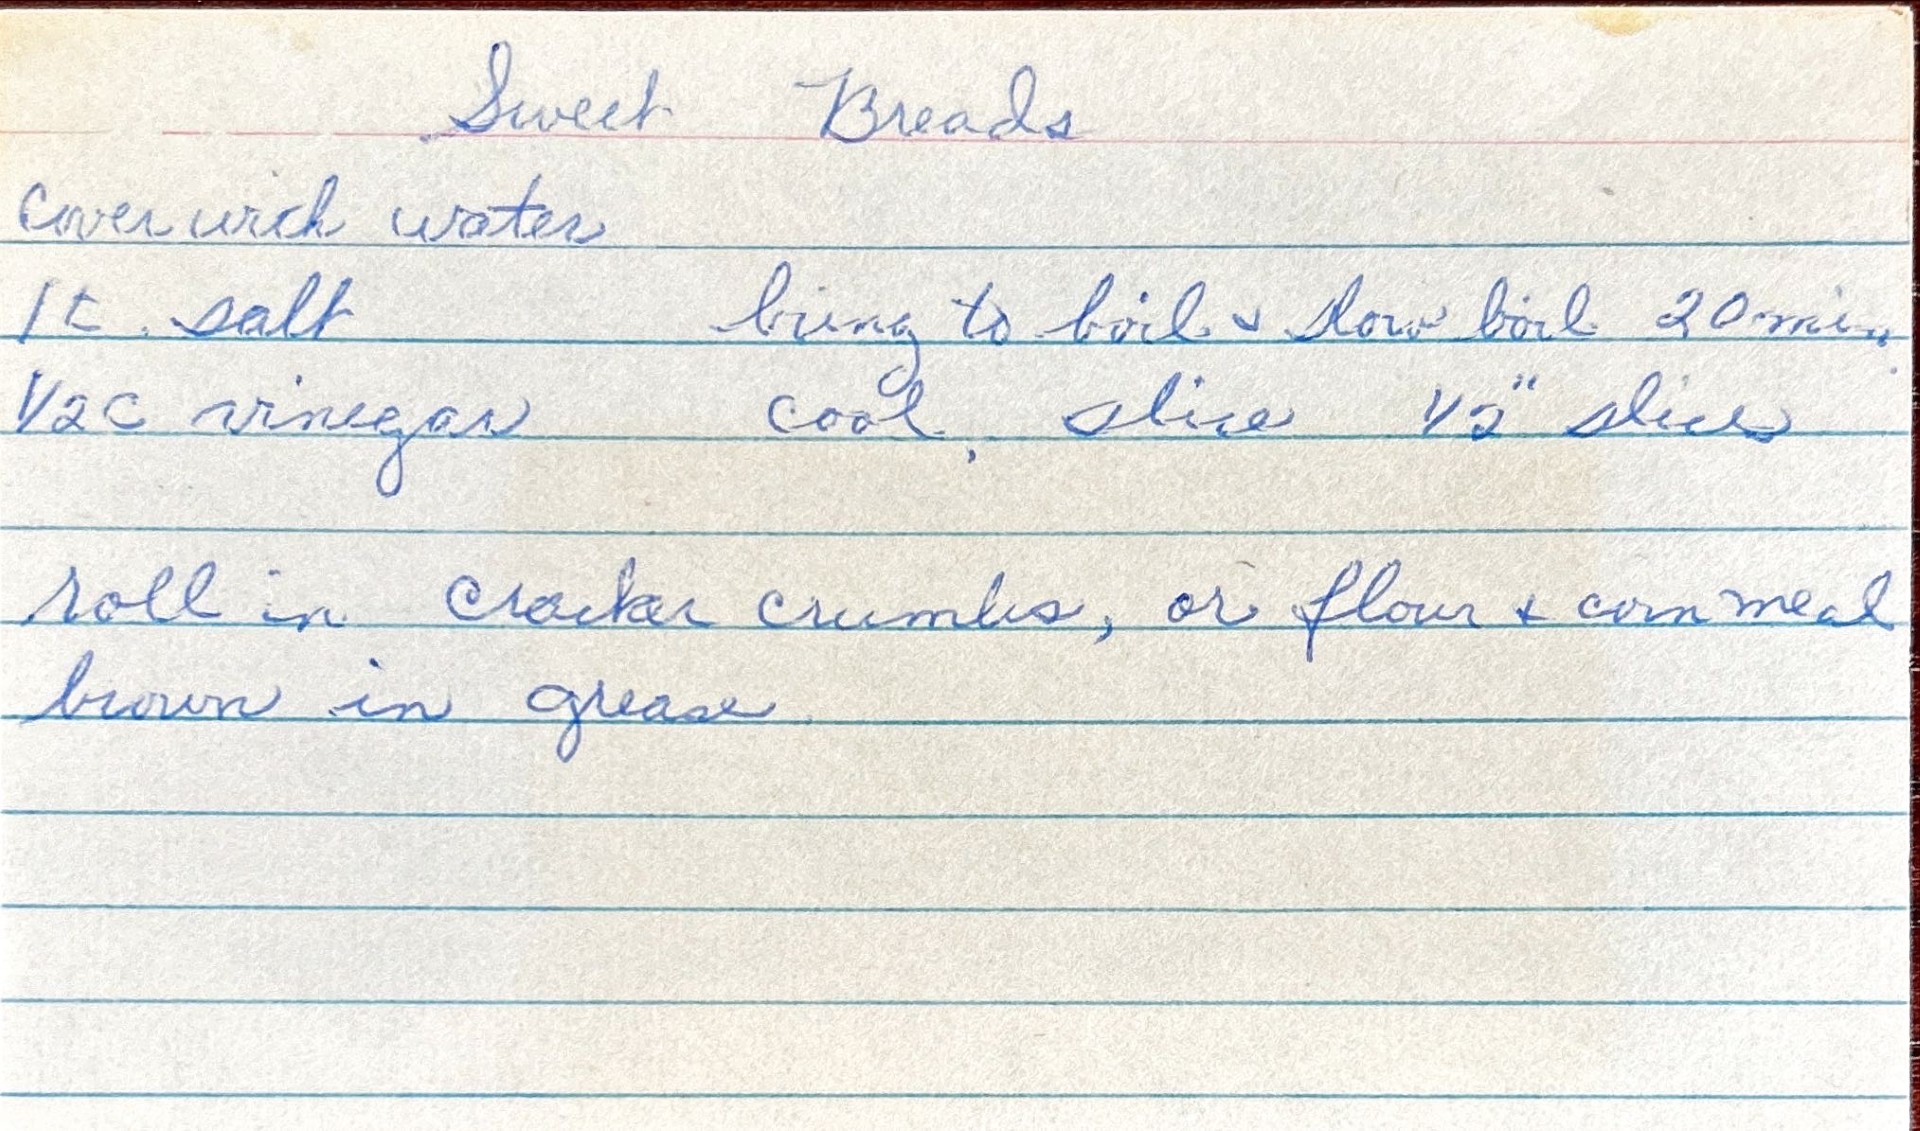 Sweet Breads
cover with water
1 t. salt bring to boil & slow boil 20 min.
1/2 c vinegar cool, slice 1/2" slices
roll in cracker crumbs, or flour & corn meal
brown in grease